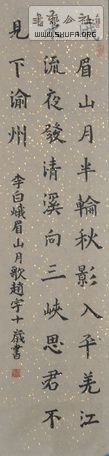 書法欣賞
WWW.SHUFA.ORG
峨眉山月半輪秋影入平羌江
水流夜發清溪向三峽思君不
見下渝州
李白峨眉山月歌趙宇十歲書